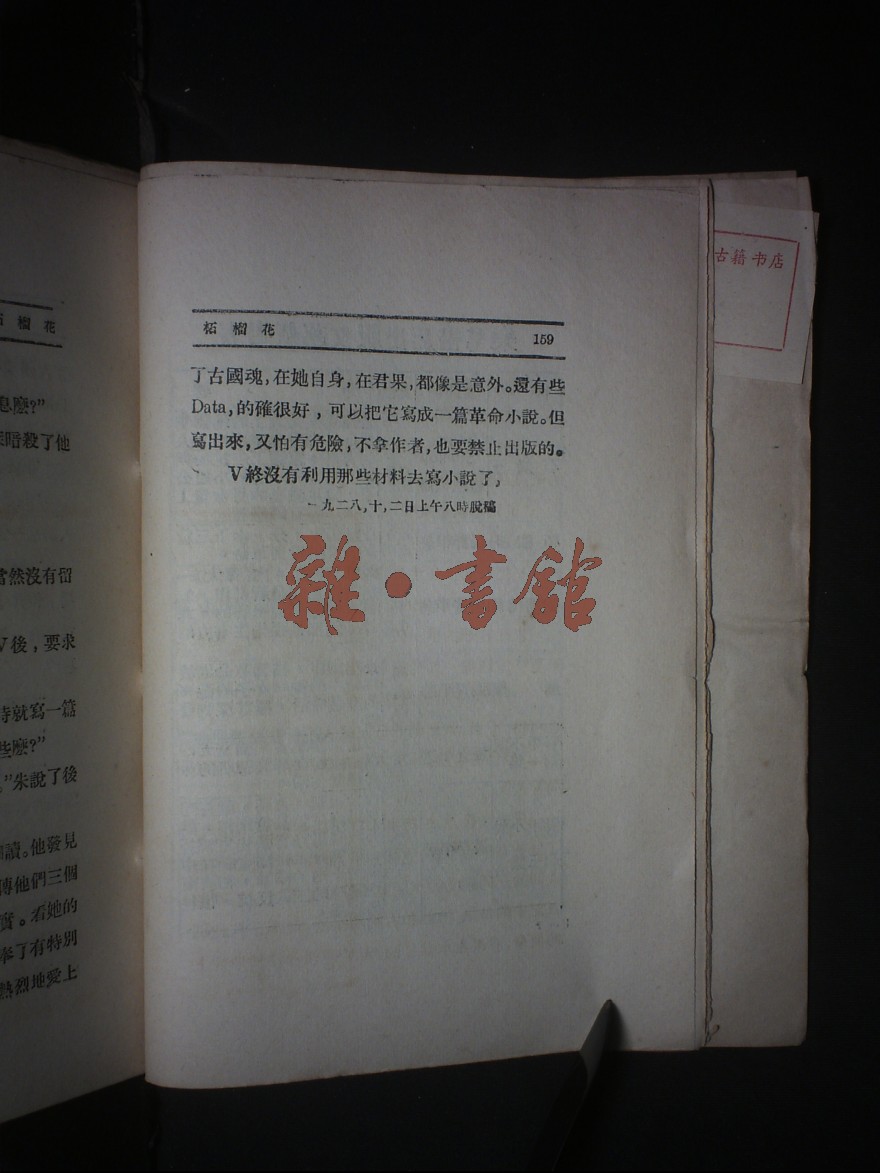 榴花
息麽?"
暗殺了他
當然沒有留
V後，要求
時就寫一篇
些麽?"
"朱說了後
讀。他發見
傳他們三個
實。看她的
奉了有特別
熱烈地愛上
柘榴花
159
丁古國魂，在她自身，在君果，都像是意外。還有些
Data，的確很好，可以把它寫成一篇革命小說。但
寫出來，又怕有危險，不拿作者，也要禁止出版的。
V終沒有利用那些材料去寫小說了。
一九二八，十，二日上午八時脫稿
雜·書館
古籍书店